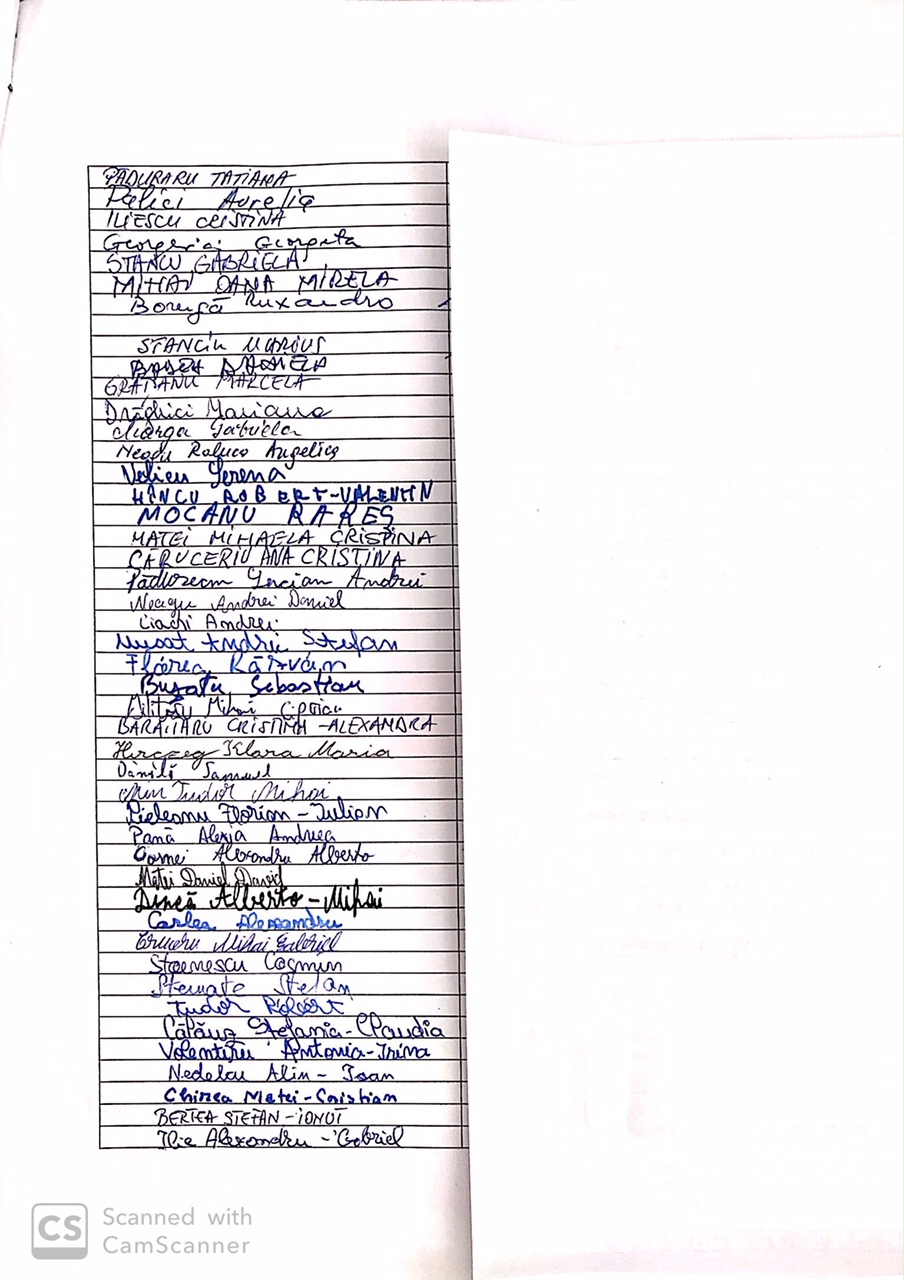 PADURARU TATIANA
Palici Aurelia
ILIESCU CRISTINA
Georgeta
STANCU GABRIELA
MIHAI OANA MIRELA
Ruxandra
STANCIU MARIUS
DANIELA
MARCELA
Drăghici Mariana
Gabriela
Neagu Raluca Angelica
Velicu Lorena
HÎNCU ROBERT-VALENTIN
MOCANU RAREȘ
MATEI MIHAELA CRISTINA
CĂRUCERIU ANA CRISTINA
Lucian Andrei
Neagu Andrei Daniel
Andrei
Andrei Ștefan
Florea Răzvan
Buzatu Sebastian
Mihai Ciprian
CRISTINA -ALEXANDRA
Herczeg Klara Maria
Dănilă Samuel
Tudor Mihai
Pieleanu Florian-Iulian
Pană Alexia Andreea
Cornei Alexandru Alberto
Matei Daniel David
Dincă Alberto-Mihai
Carlea Alexandru
Mihai Gabriel
Stoenescu Cosmin
Stemate Ștefan
Tudor Robert
Ștefania-Claudia
Volentiru Antonia-Irina
Nedelcu Alin - Ioan
Chirea Matei-Cristian
BERTEA STEFAN-IONUT
Ilie Alexandru-Gabriel
CS Scanned with
CamScanner